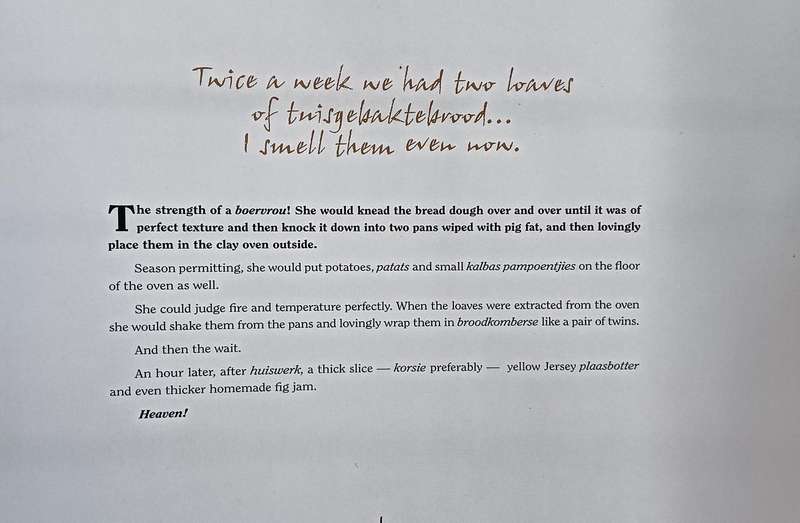 Twice a week we had two loaves
of tuisgebaktebrood...
I smell them even now.
The strength of a boervrou! She would knead the bread dough over and over until it was of
perfect texture and then knock it down into two pans wiped with pig fat, and then lovingly
place them in the clay oven outside.
Season permitting, she would put potatoes, patats and small kalbas pampoentjies on the floor
of the oven as well.
She could judge fire and temperature perfectly. When the loaves were extracted from the oven
she would shake them from the pans and lovingly wrap them in broodkomberse like a pair of twins.
And then the wait.
An hour later, after huiswerk, a thick slice — korsie preferably — yellow Jersey plaasbotter
and even thicker homemade fig jam.
Heaven!